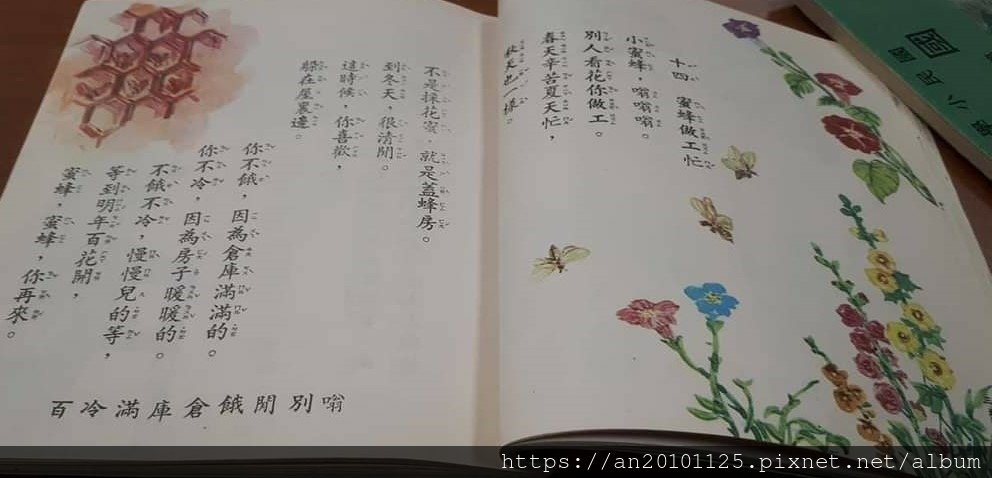 十四 蜜蜂做工忙
小蜜蜂，嗡嗡嗡。
別人看花你做工。
春天辛苦夏天忙，
秋天也一樣。
不是採花蜜，就是蓋蜂房。
到冬天，很清閒。
這時候，你喜歡，
躲在屋裏邊。
你不餓，因為倉庫滿滿的。
你不冷，因為房子暖暖的。
不餓不冷，慢慢兒的等，
等到明年百花開，
蜜蜂，蜜蜂，你再來。
嗡別閒餓倉庫滿冷百
國民小學
國
https://an20101125.pixnet.net/album